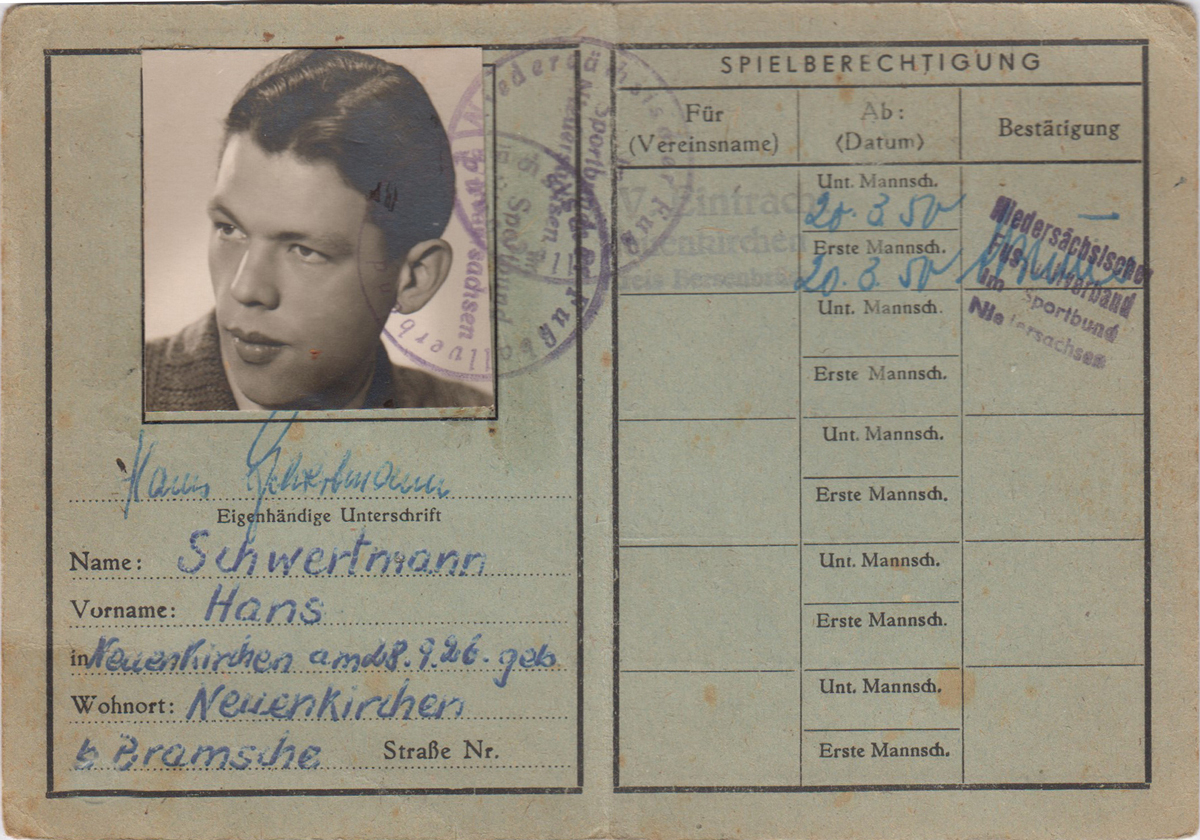 Hans Schwertmann
Eigenhändige Unterschrift
Name: Schwertmann
Vorname: Hans
in Neuenkirchen am 28.9.26. geb
Wohnort: Neuenkirchen
b Bramsche Straße Nr.
SPIELBERECHTIGUNG
Für
(Vereinsname)
Ab:
(Datum)
Bestätigung
V. Eintrach
Neuenkirchen
Kreis Bersenbrück
Unt. Mannsch.
20.3.50
Erste Mannsch.
20.3.50
Niedersächsischer
Fussballverband
im Sportbund
Niedersachsen
Unt. Mannsch.
Erste Mannsch.
Unt. Mannsch.
Erste Mannsch.
Unt. Mannsch.
Erste Mannsch.
Unt. Mannsch.
Erste Mannsch.